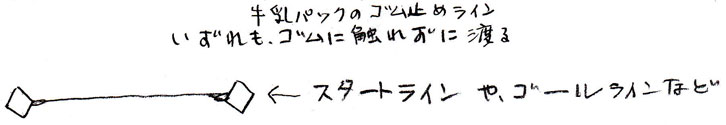 牛乳パックのゴム止めライン
いずれも、ゴムに触れずに渡る
← スタートライン や、ゴールラインなど